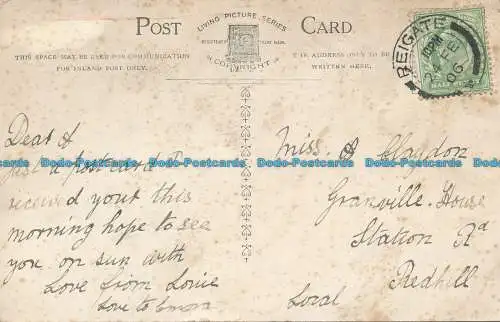 POST CARD
LIVING PICTURE SERIES
COPYRIGHT
THIS SPACE MAY BE USED FOR COMMUNICATION
FOR INLAND POST ONLY.
THE ADDRESS ONLY TO BE
WRITTEN HERE.
REIGATE
FE
06
HALF
Dear A
Just a postcard I
received yours this
morning hope to see
you on sun with
Love from Louie
Love to
Miss. Claydon
Granville. House
Station Rd
Redhill
Local
Dodo-Postcards Dodo-Postcards Dodo-Postcards Dodo-Postcards